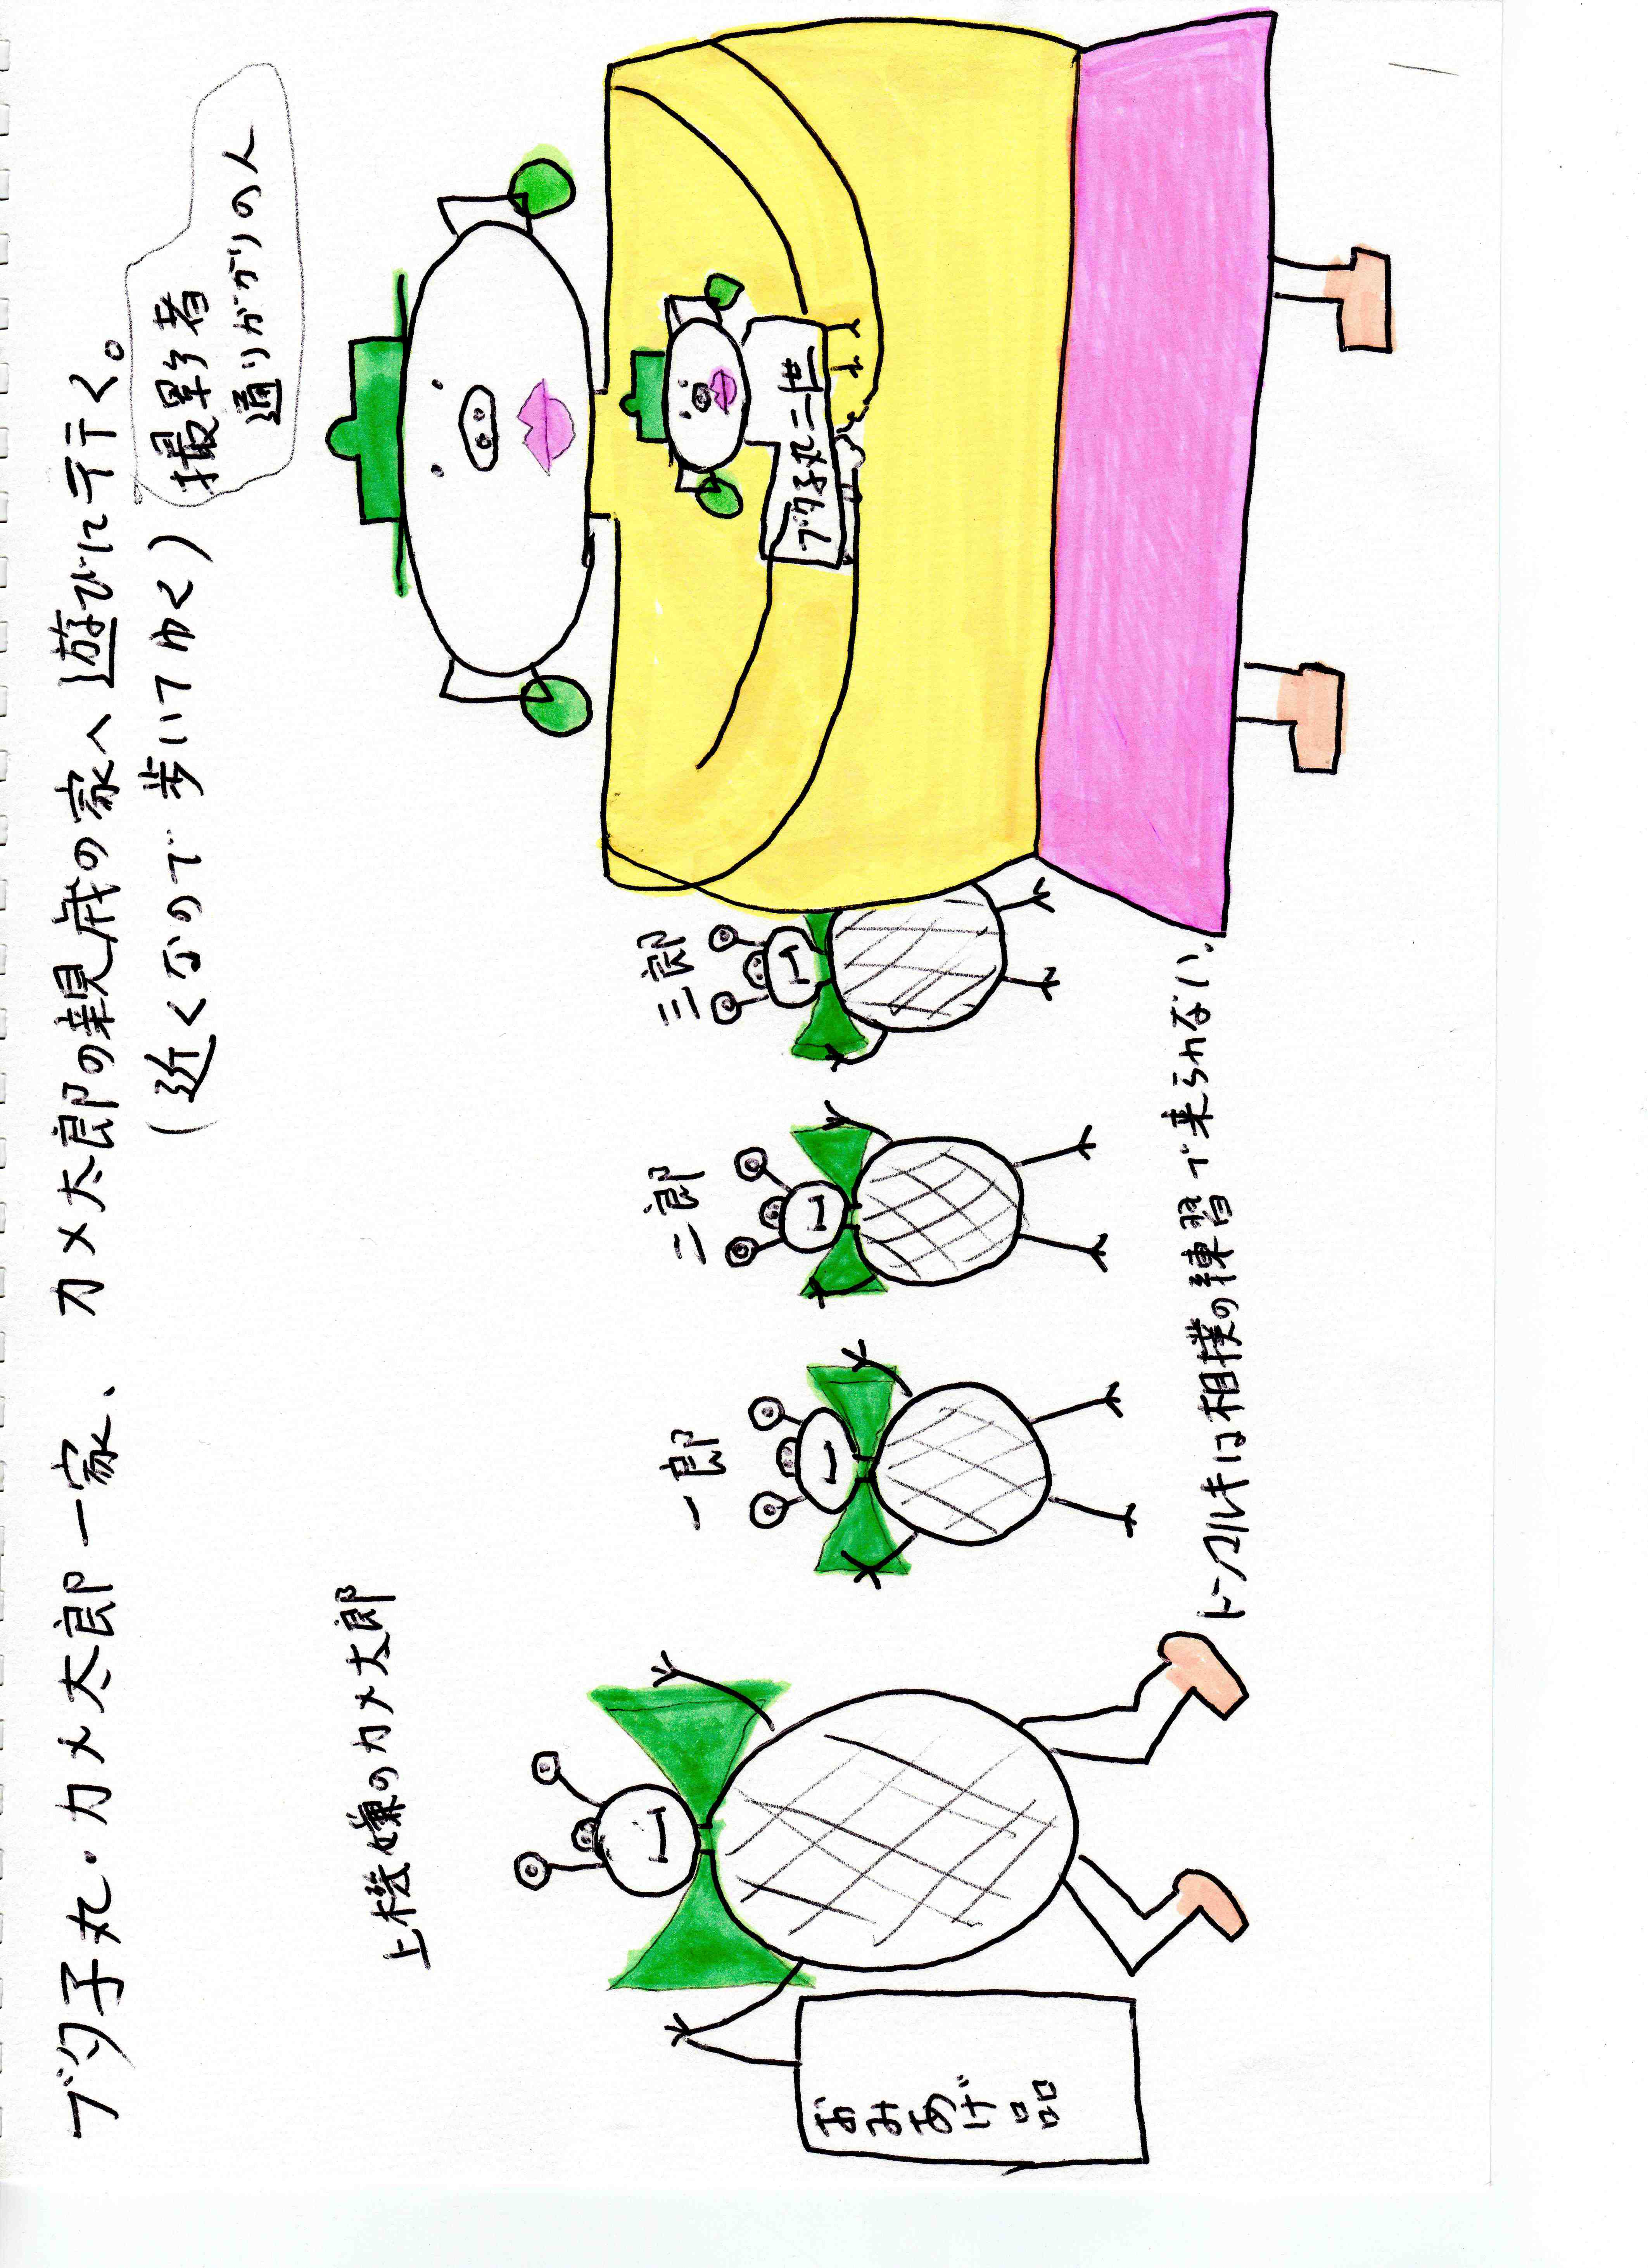 ブタ子丸・カメ太郎一家、カメ太郎の親戚の家へ遊びに行く。
(近くなので歩いてゆく)
撮影者
通りがかりの人
上機嫌のカメ太郎
一郎
二郎
三郎
ブタ子丸二世
おみあげ品
は相撲の練習で来られない。